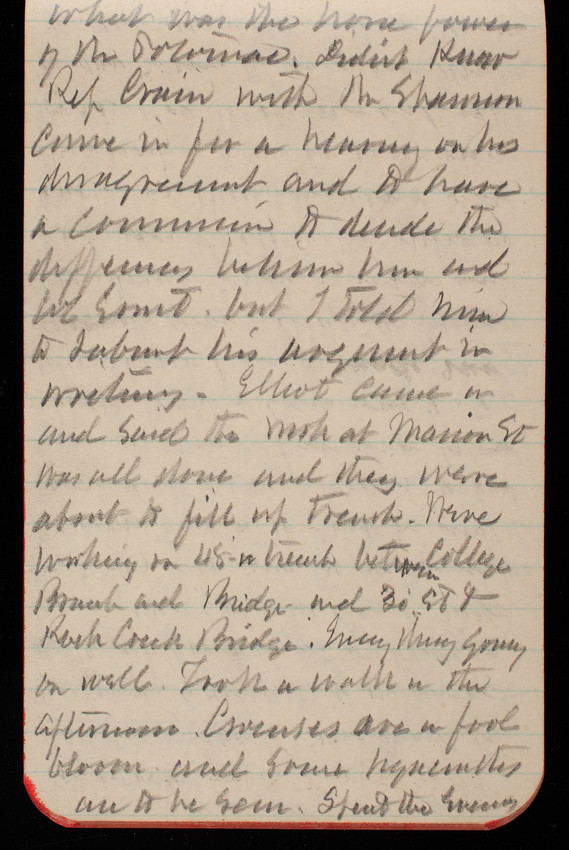 what was the horse power
of the Potomac. Didn't know
Rep Crain with Mr Shannon
came in for a hearing on his
disagreement and to have
a commission to decide the
differences between him and
the Gov't. but I told him
to submit his argument in
writing - Elliot came in
and said the work at Marion St
was all done and they were
about to fill up trench. Were
working on 48 in trench between College
Branch and Bridge and 30 St &
Rock Creek Bridge. Every thing going
on well. Took a walk in the
afternoon. Crocuses are in full
bloom and some hyacinths
are to be seen. Spent the Evening